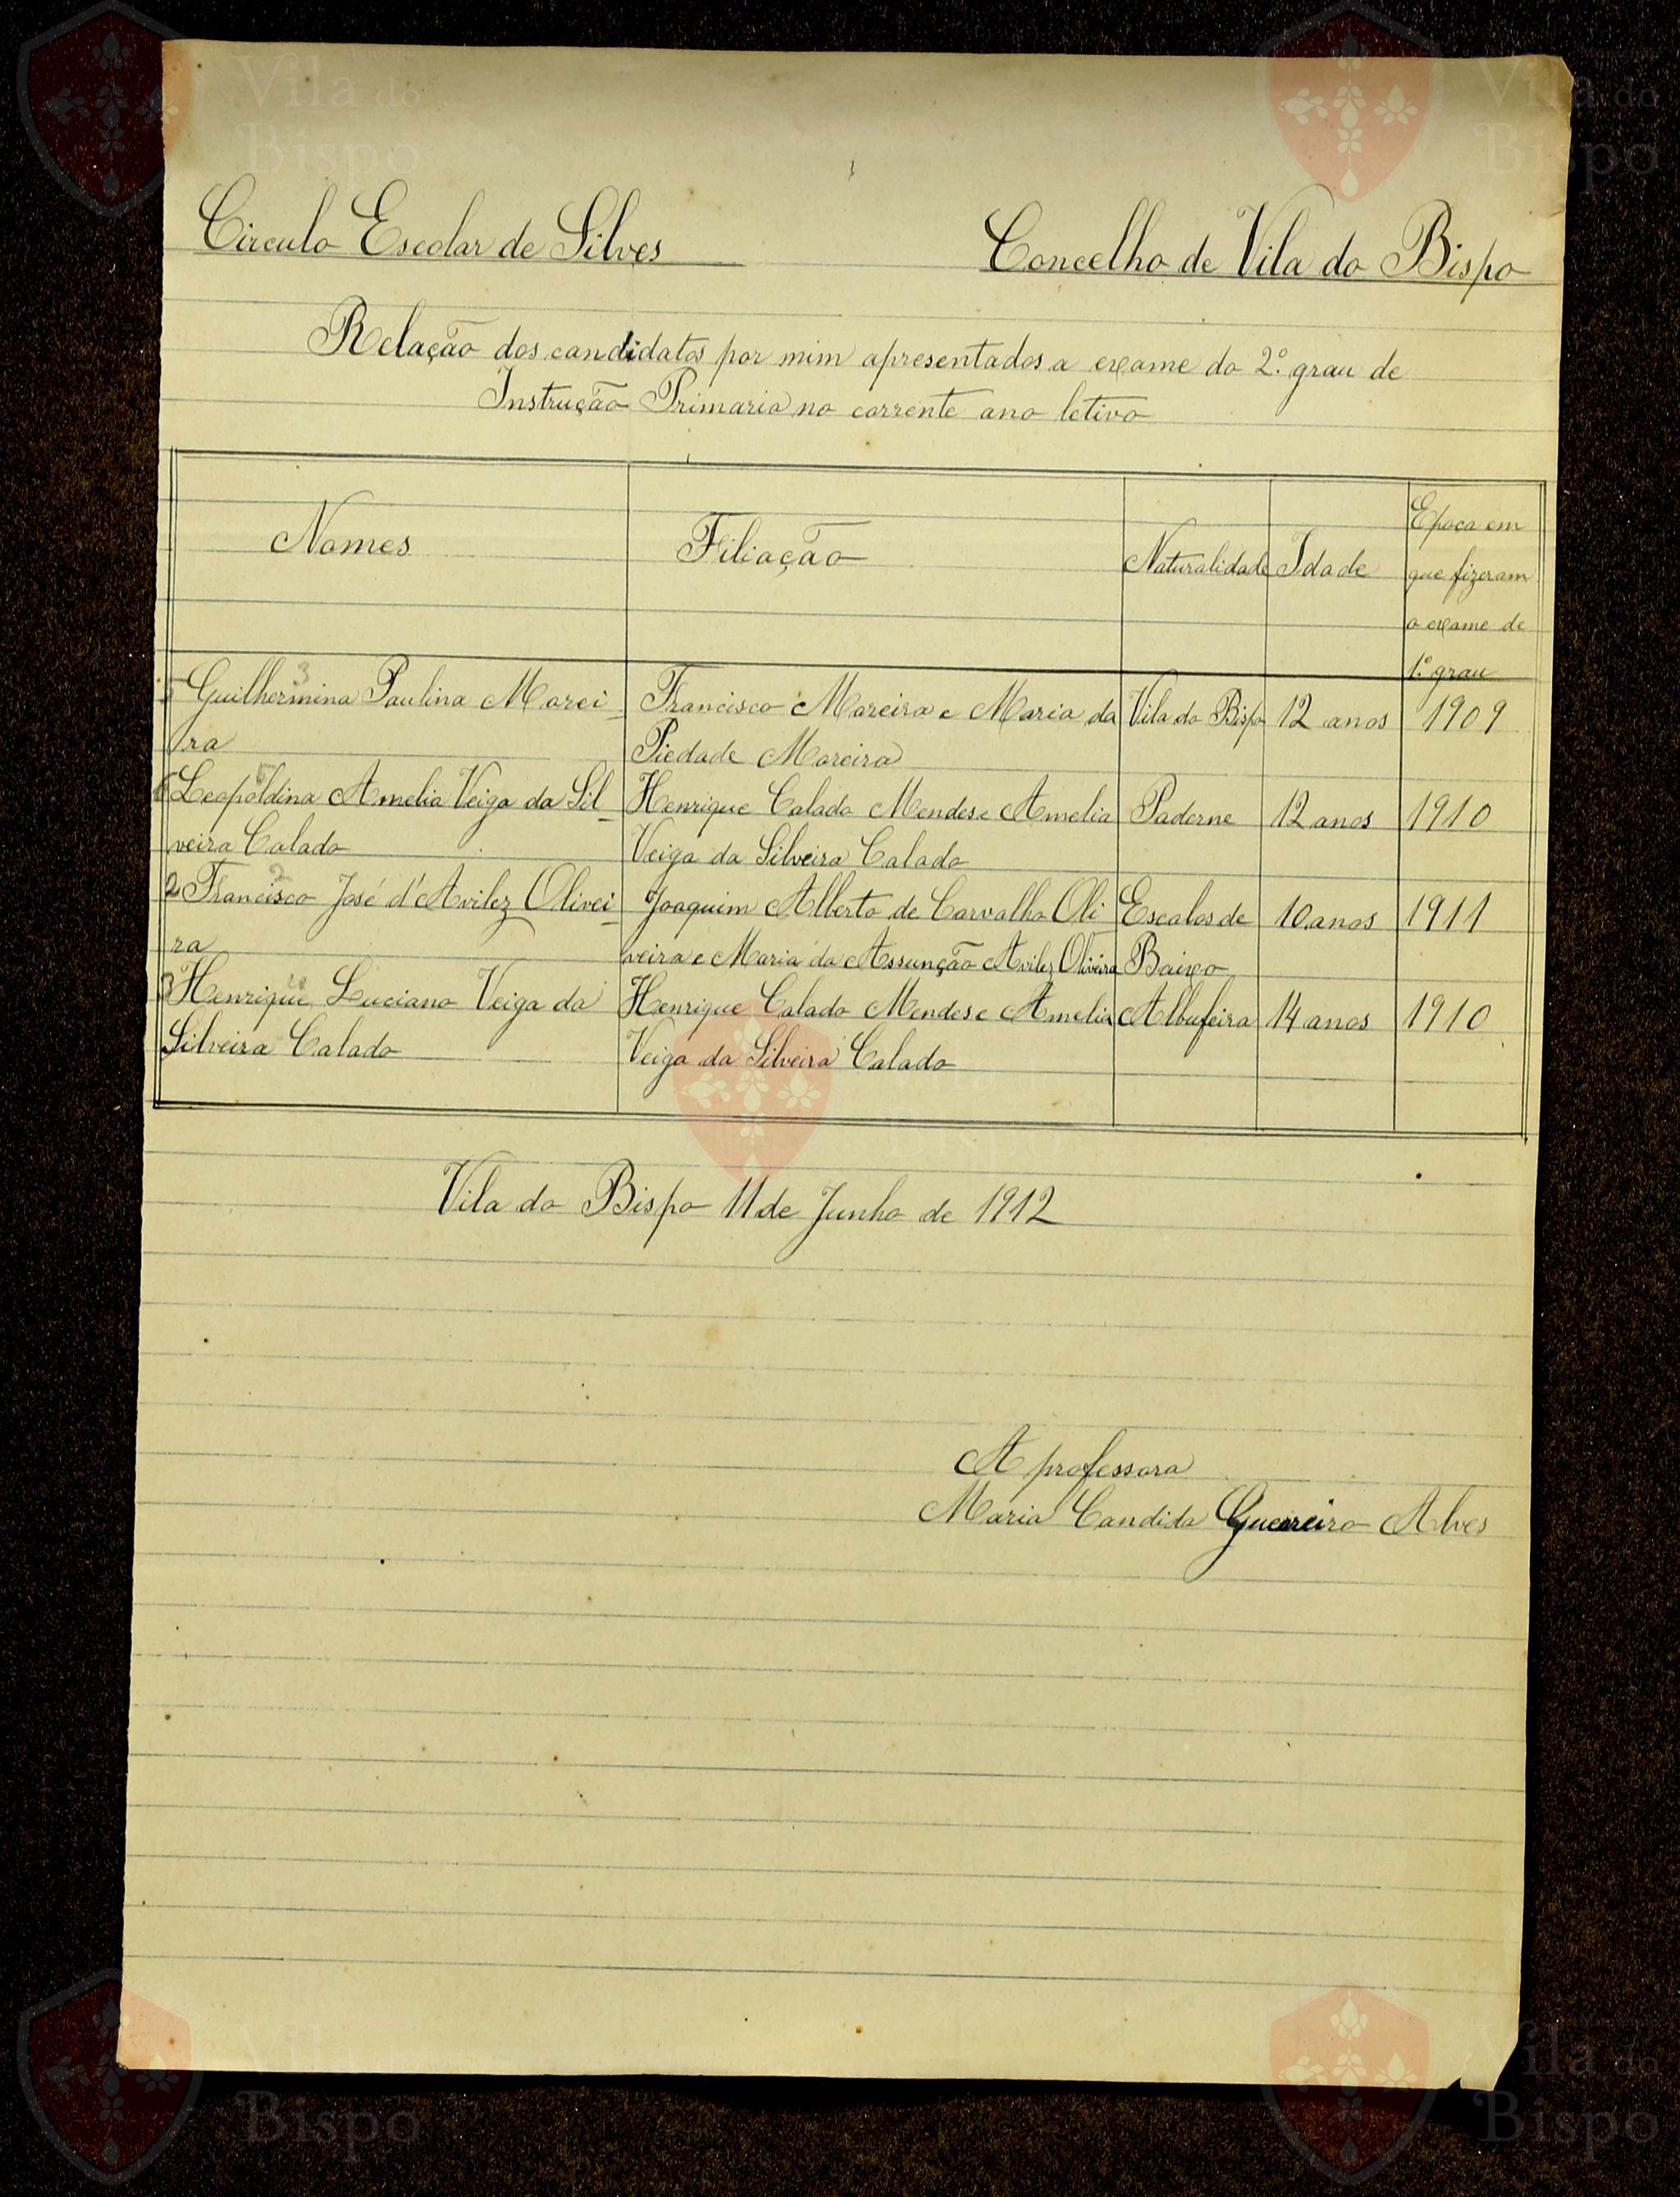 Circulo Escolar de Silves Concelho de Vila do Bispo
Relação dos candidatos por mim apresentados a exame do 2.º grau de
Instrução Primaria no corrente ano letivo
Nomes Filiação Naturalidade Idade Epoca em
que fizeram
o exame de
1.º grau
Guilhermina Paulina Morei Francisco Moreira e Maria da Vila do Bispo 12 anos 1909
ra Piedade Moreira
Leopoldina Amelia Veiga da Sil Henrique Calado Mendes e Amelia Paderne 12 anos 1910
veira Calado Veiga da Silveira Calado
2 Francisco José d'Avilez Olivei Joaquim Alberto de Carvalho Oli Escalos de 10 anos 1911
ra veira e Maria da Assunção Avilez Oliveira Baixo
3 Henrique Luciano Veiga da Henrique Calado Mendes e Amelia Albufeira 14 anos 1910
Silveira Calado Veiga da Silveira Calado
Vila do Bispo 11 de Junho de 1912
A professora
Maria Candida Guerreiro Alves
Vila do
Bispo
Vila do
Bispo
Bispo
Vila do
Bispo